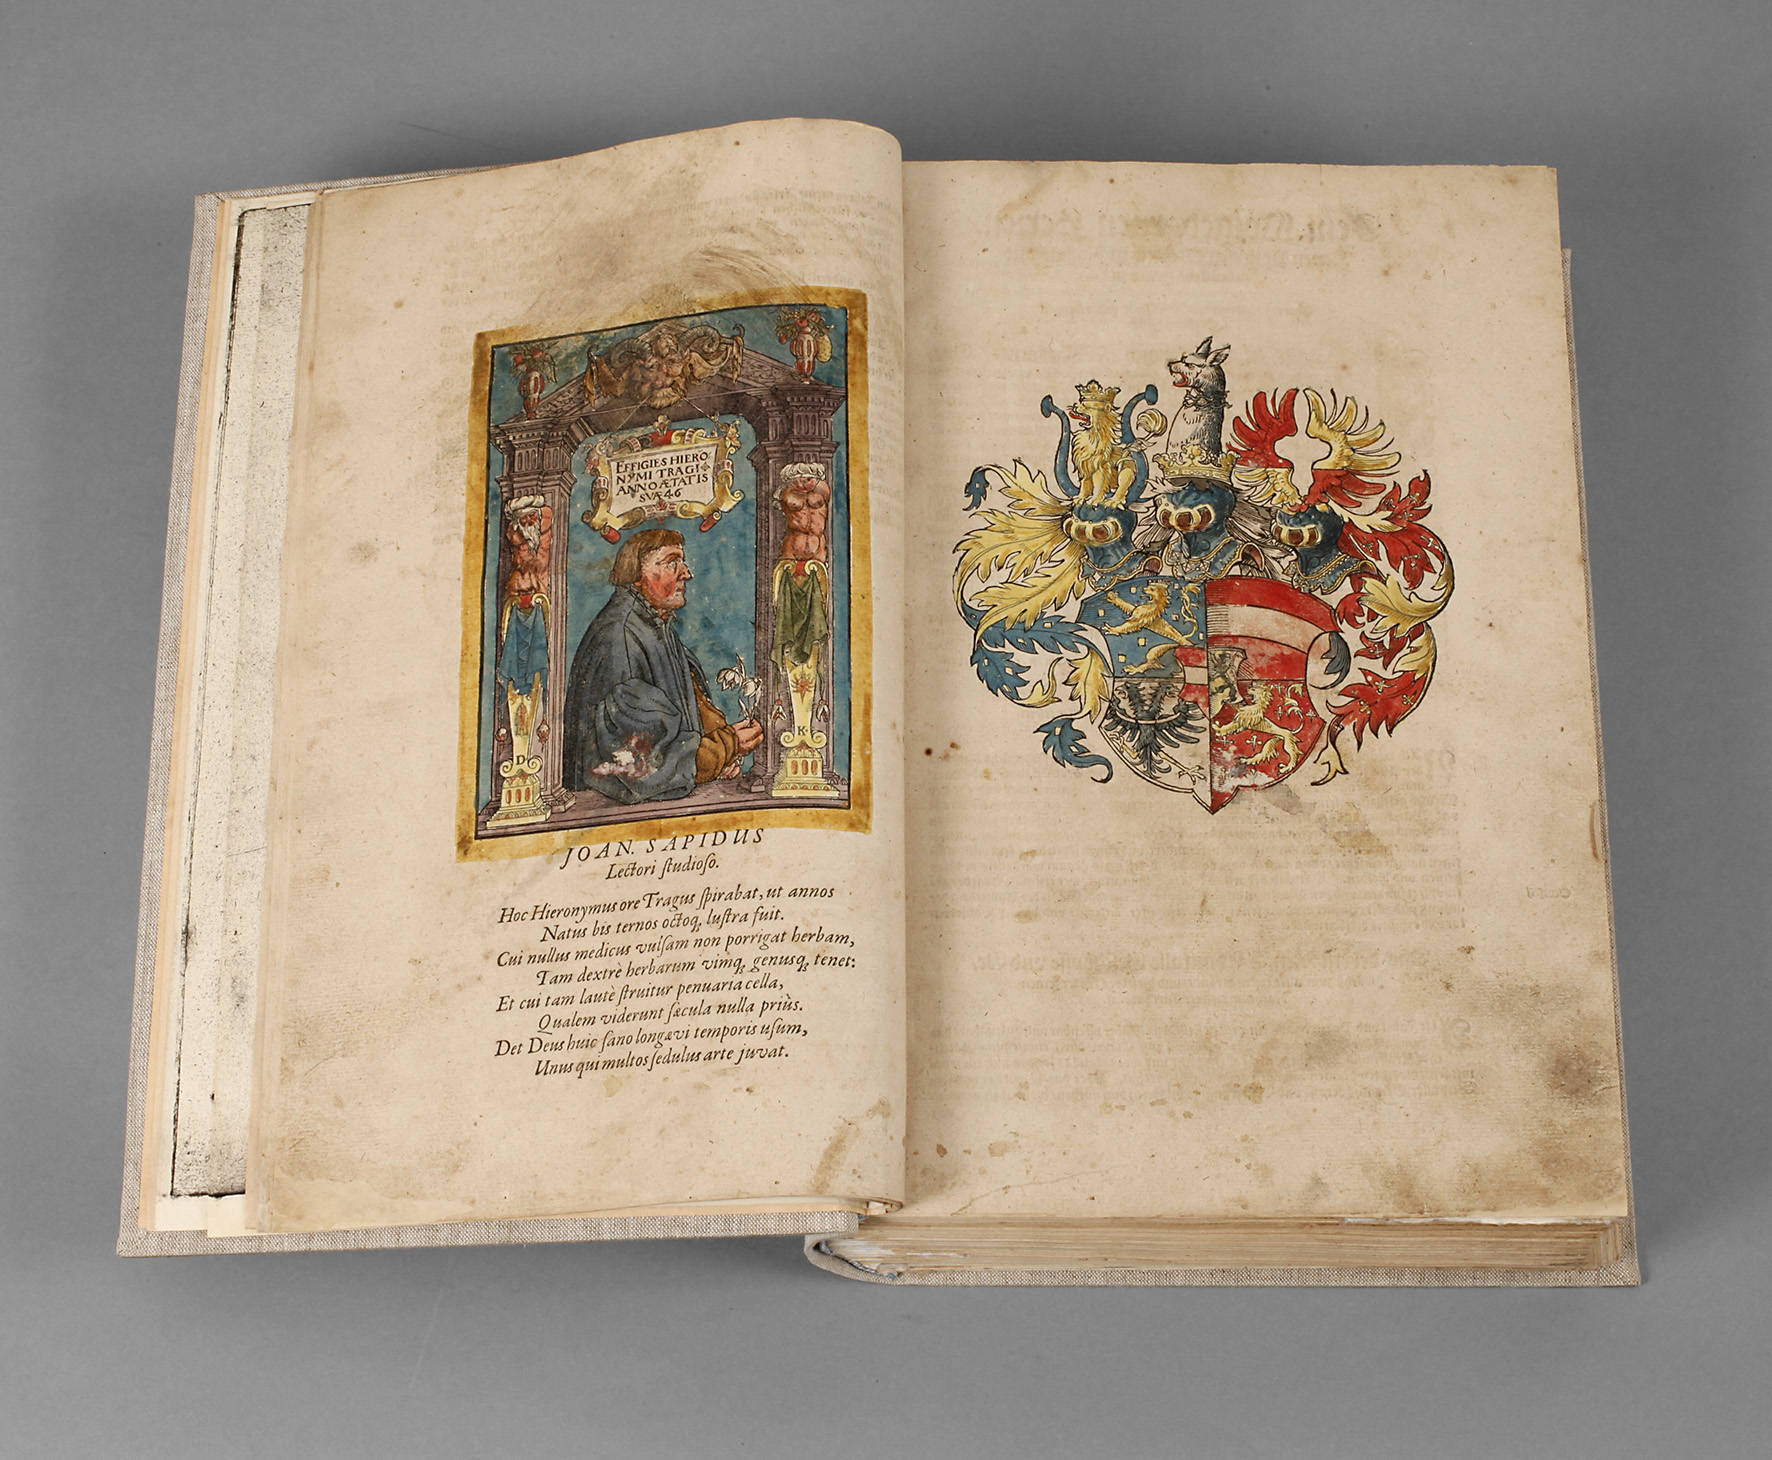 EFFIGIES HIERO
NYMI TRAGI
ANNO ÆTATIS
SVÆ 46
D
K
JOAN. SAPIDUS
Lectori ſtudioſo.
Hoc Hieronymus ore Tragus ſpirabat, ut annos
Natus bis ternos octoq; luſtra fuit.
Cui nullus medicus vulſam non porrigat herbam,
Tam dextrè herbarum vimq; genusq; tenet:
Et cui tam lautè ſtruitur penuaria cella,
Qualem viderunt ſæcula nulla priùs.
Det Deus huic ſano longævi temporis uſum,
Unus qui multos ſedulus arte juvat.